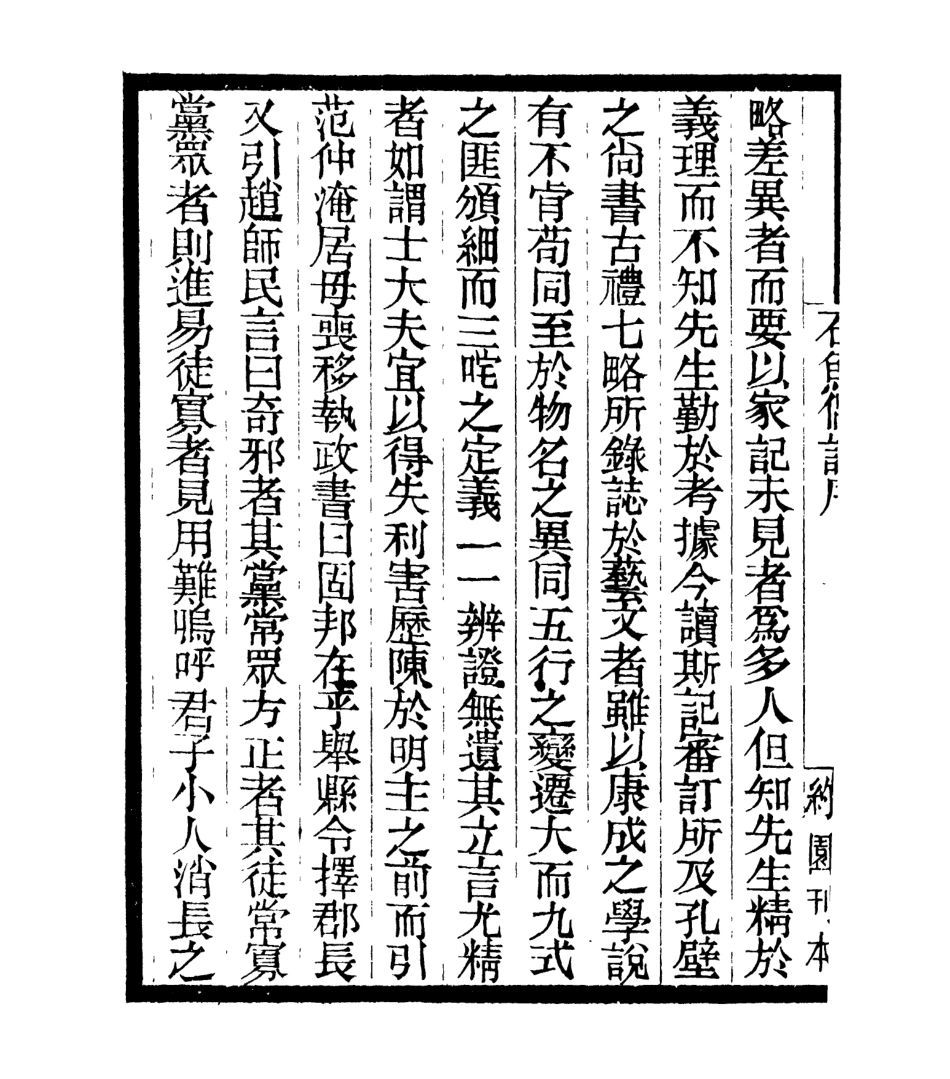 略差異者而要以家記未見者爲多人但知先生精於
義理而不知先生勤於考據今讀斯記審訂所及孔壁
之尙書古禮七略所錄誌於藝文者雖以康成之學說
有不肯苟同至於物名之異同五行之變遷大而九式
之匪頒細而三咤之定義一一辨證無遺其立言尤精
者如謂士大夫宜以得失利害歷陳於明主之前而引
范仲淹居母喪移執政書曰固邦在乎舉縣令擇郡長
又引趙師民言曰奇邪者其黨常眾方正者其徒常寡
黨眾者則進易徒寡者見用難嗚呼君子小人消長之
約園刊本